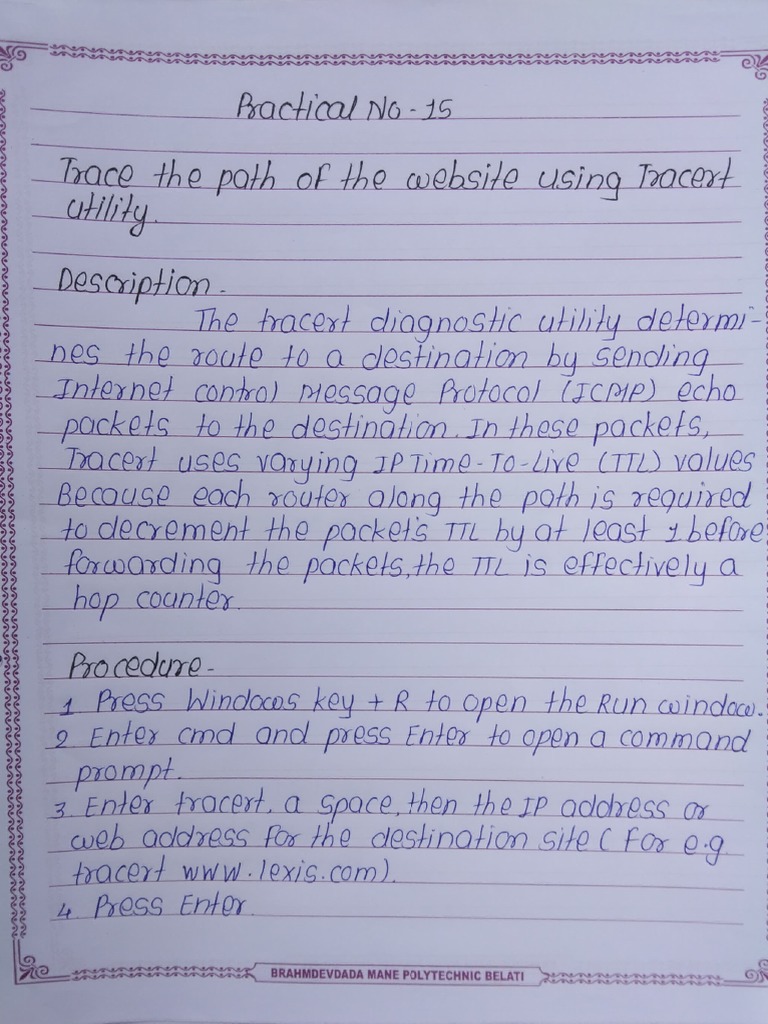 Practical No - 15
Trace the path of the website using Tracert
utility.
Description -
The tracert diagnostic utility determi-
nes the route to a destination by sending
Internet control Message Protocol (ICMP) echo
packets to the destination. In these packets,
Tracert uses varying IP Time-To-Live (TTL) values
Because each router along the path is required
to decrement the packet's TTL by at least 1 before
forwarding the packets, the TTL is effectively a
hop counter.
Procedure -
1 Press Windows key + R to open the Run window.
2. Enter cmd and press Enter to open a command
prompt.
3. Enter tracert, a space, then the IP address or
web address for the destination site ( For e.g.
tracert www.lexis.com).
4. Press Enter.
BRAHMDEVDADA MANE POLYTECHNIC BELATI